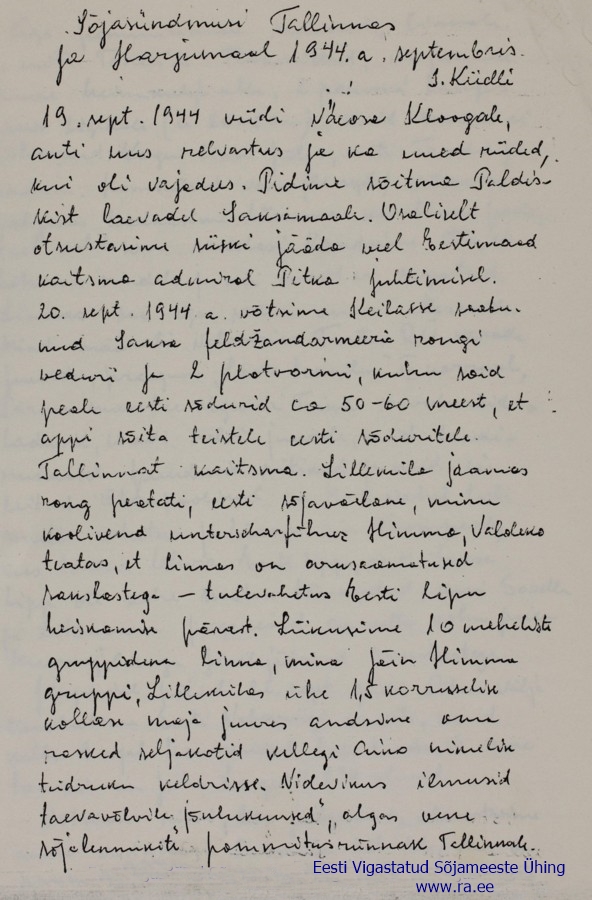 Sõjasündmusi Tallinnas
ja Harjumaal 1944. a. septembris.
I. Küdli
19. sept. 1944 viidi väeosa Kloogale,
anti uus relvastus ja ka uued riided,
kui oli vajadus. Pidime sõitma Paldis-
kist laevadel Saksamaale. Osaliselt
otsustasime siiski jääda veel Eestimaad
kaitsma admiral Pitka juhtimisel.
20. sept. 1944 a. võtsime Keilasse saabu-
nud Saksa feldžandarmeeria rongi
veduri ja 2 platvormi, kuhu said
peale eesti sõdurid ca 50-60 meest, et
appi sõita teistele eesti sõduritele
Tallinnat kaitsma. Lilleküla jaamas
rong peatati, eesti sõjaväelane, minu
koolivend unterscharführer Himma, Valdeko
teatas, et linnas on arusaamatused
sakslastega – tulevahetus Eesti lipu
heiskamise pärast. Liikusime 10 meheliste
gruppidena linna, mina jäin Himma
gruppi, Lillekülas ühe 1,5 korruselise
kollase maja juures andsime oma
rasked seljakotid kellegi Aino nimelise
tüdruku keldrisse. Videvikus ilmusid
taevavõlvile „jõulukuused", algas vene
sõjalennukite pommitusrünnak Tallinnale.
Eesti Vigastatud Sõjameeste Ühing
www.ra.ee